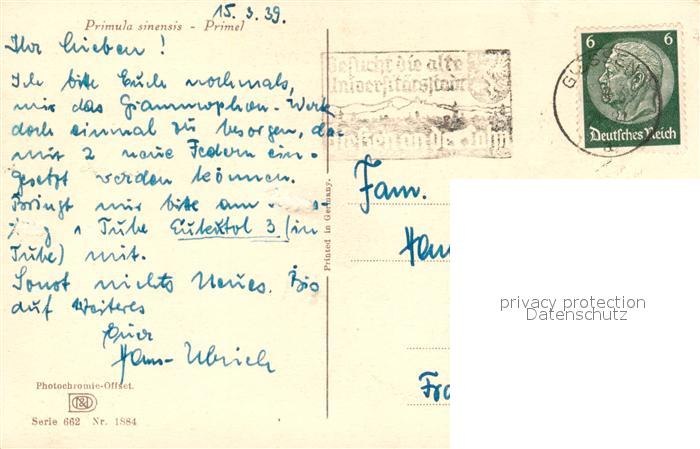 15. 3. 39.
Primula sinensis - Primel
Ihr Lieben!
Ich bitte Euch nochmals,
mir das Grammophon-Werk
doch einmal zu besorgen, da-
mit 2 neue Federn ein-
gesetzt werden können.
Bringt mir bitte am
1 Tube Eukutol 3 (in
Tube) mit.
Sonst nichts Neues. Bis
auf Weiteres
Euer
Hans-Ulrich
Photochromie-Offset.
Serie 662 Nr. 1884
Printed in Germany.
Besucht die alte
Universitätsstadt
Gießen an der Lahn
GIESSEN
6 6
Deutsches Reich
Fam.
Han
Fra
privacy protection
Datenschutz